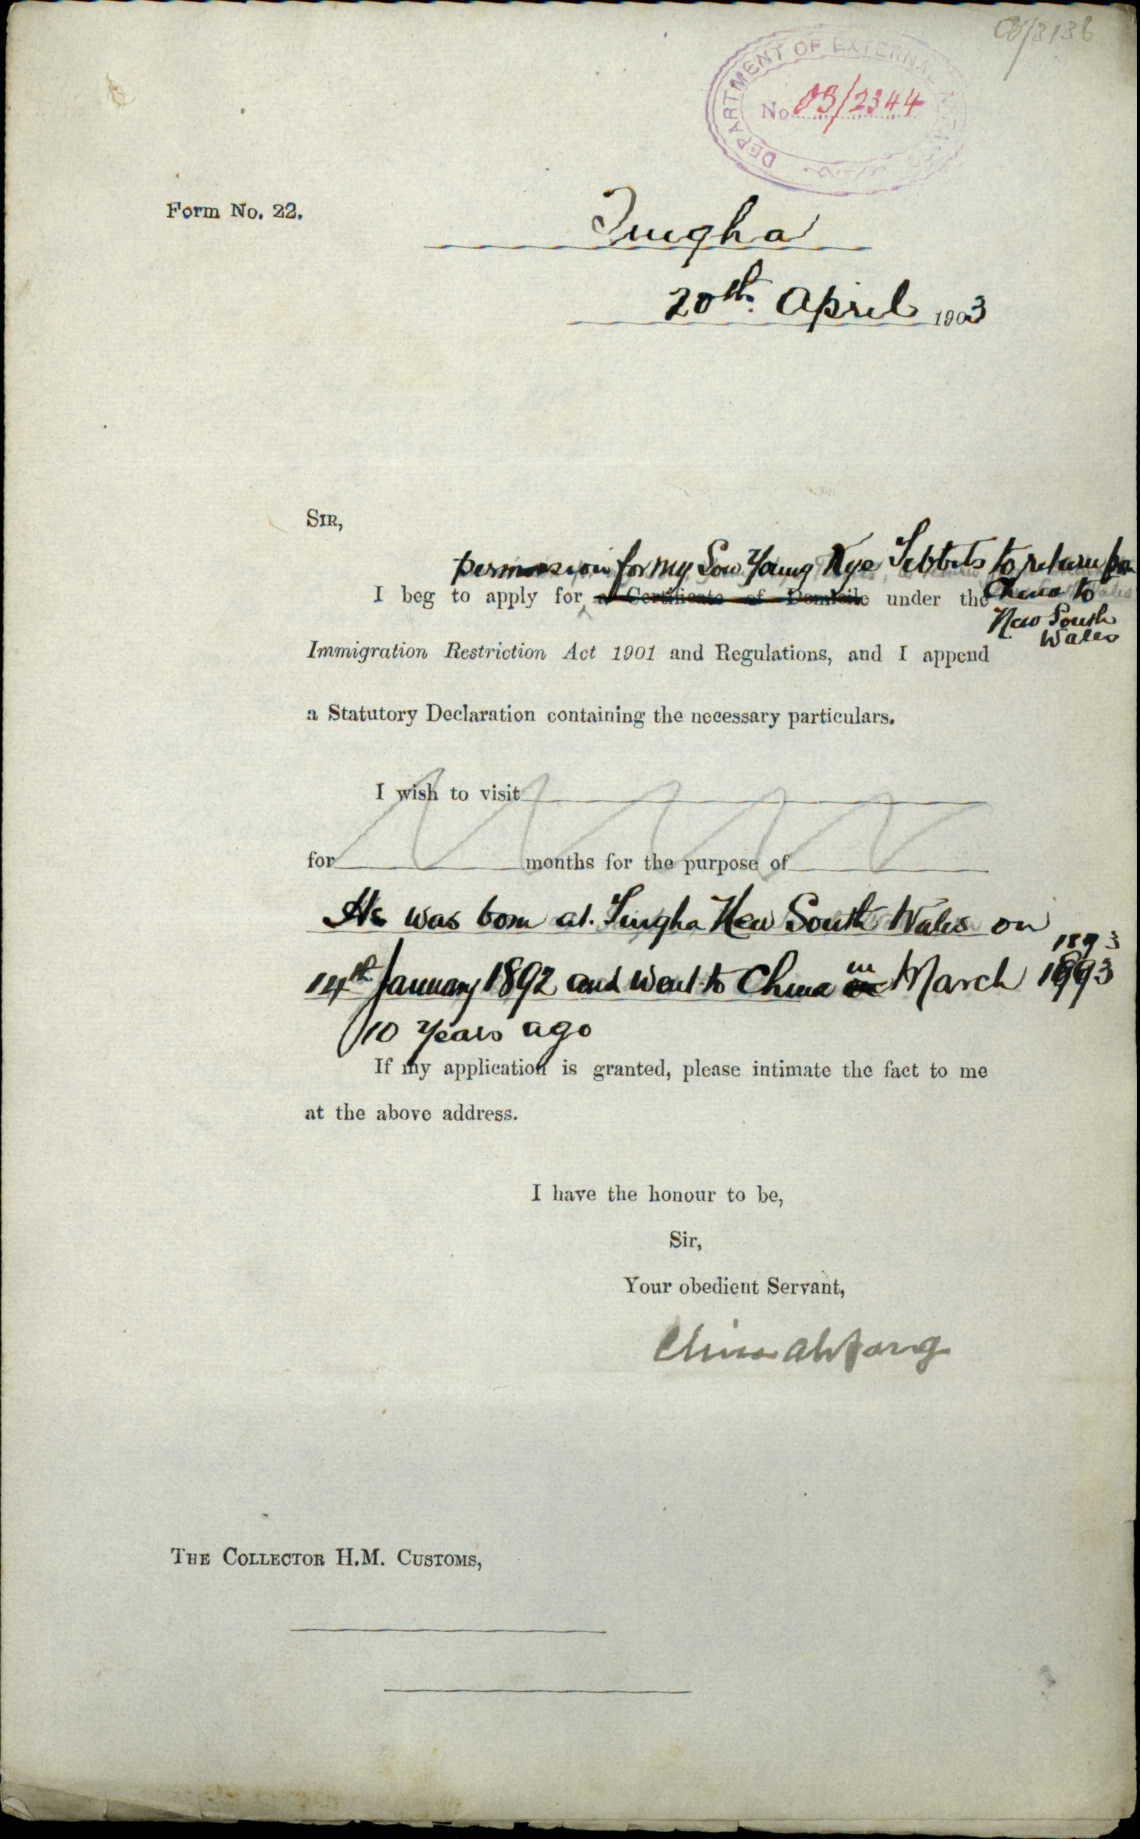 03/3138
DEPARTMENT OF EXTERNAL
No. 03/2344
Form No. 22.
Tingha
20th. April 1903
SIR,
permission for my Son Young Kye Tibbits to return from
I beg to apply for a Certificate of Domicile under the China to
New South
Wales
Immigration Restriction Act 1901 and Regulations, and I append
a Statutory Declaration containing the necessary particulars.
I wish to visit
for months for the purpose of
He was born at. Tingha New South Wales on
1893
14th January 1892 and went to China in March 1893
10 years ago
If my application is granted, please intimate the fact to me
at the above address.
I have the honour to be,
Sir,
Your obedient Servant,
THE COLLECTOR H.M. CUSTOMS,